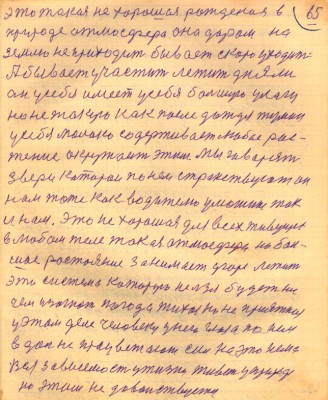 65
это такая не хорошая рожденая в
природе атмосфера она даром на
землю не приходит бывает скоро уходит
А бывает участит летит дня ли
он у себя имеет у себя большую влагу
но не такую как после дождя туман
у себя молоко содерживает любое рас-
тение окружает этим. Мы говорят
звери которой по нем странствует он
нам тоже как водителю умошик так
и нам. Это не хорошая для всех живущих
в любом теле такая атмосфера на боль-
шое растояние занимает угоре летит
это система которую нельзя будет ни
чем изогнат погода тихая но не приятная
у этом деле человеку у него глаза по нем
вдоль не процветают сил на это нема
Вся зависемость у жизни живет у природе
но этим не довольствуется